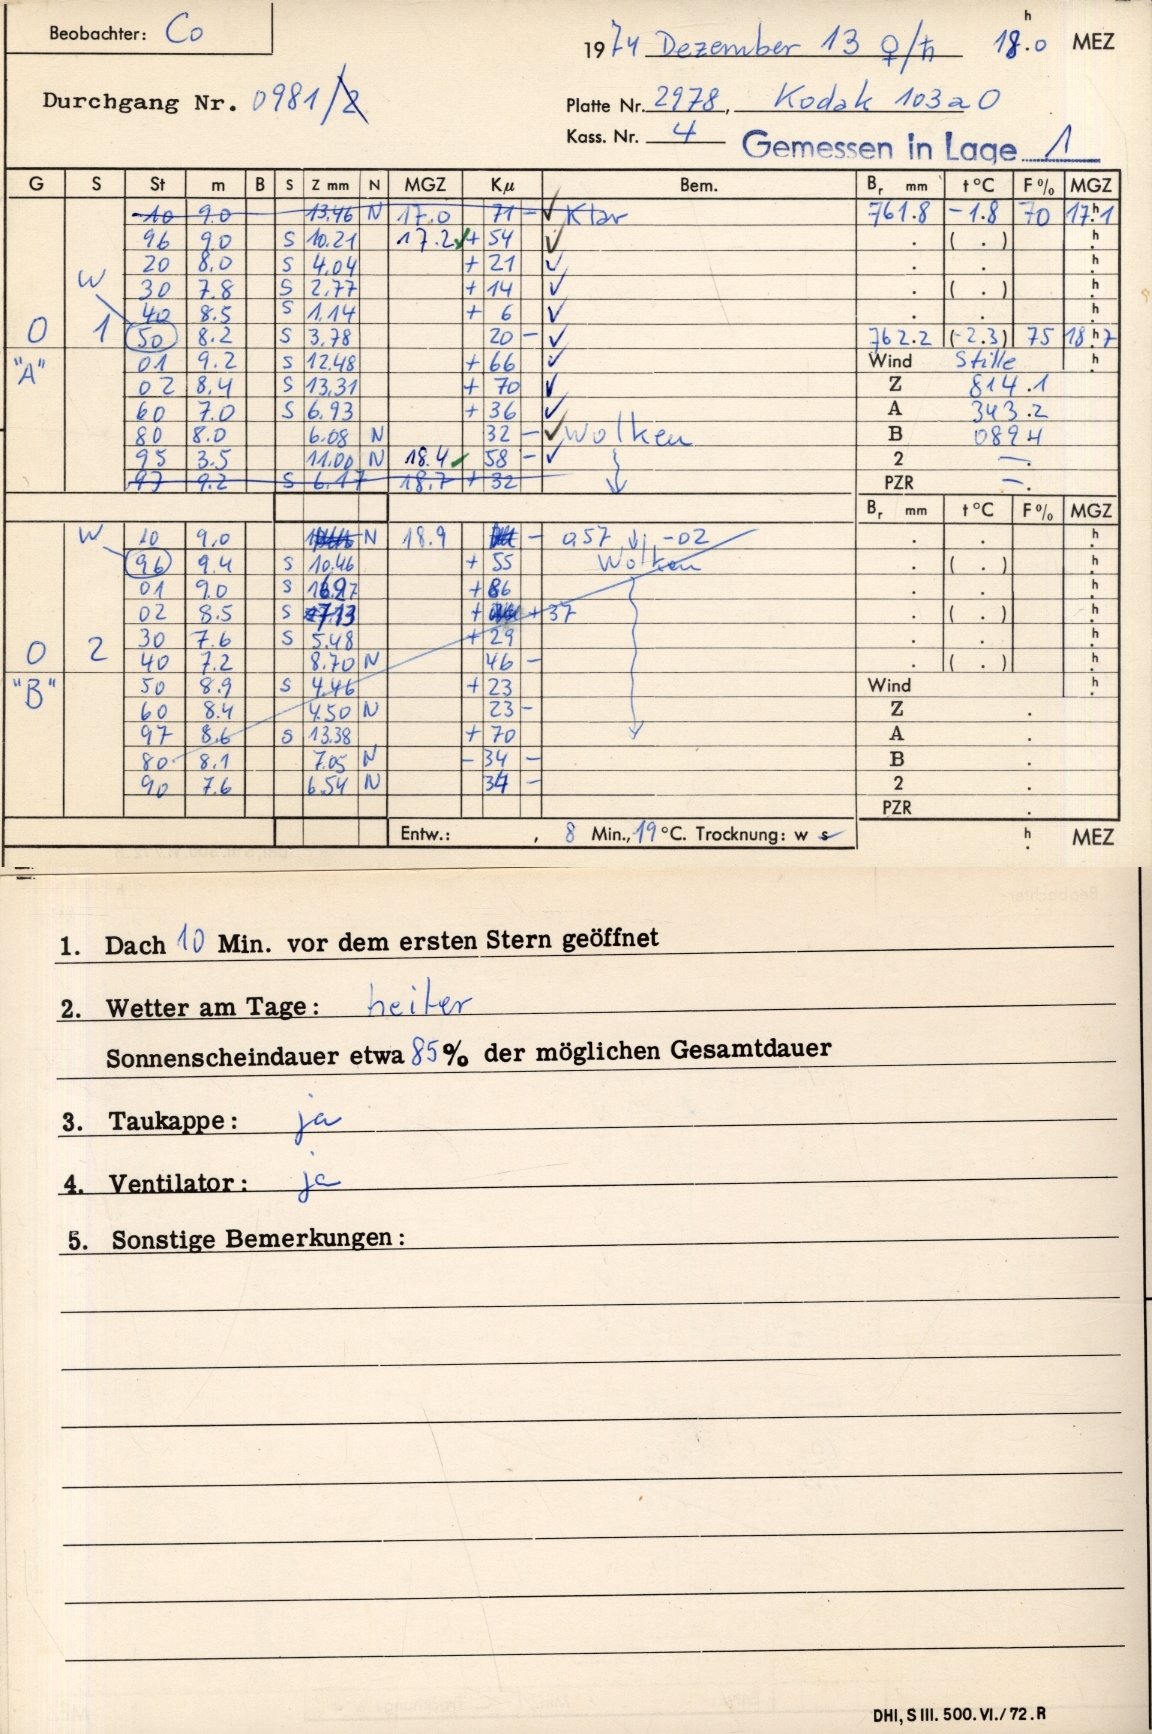 Beobachter: Co
1974 Dezember 13 ♀/♄ 18.0 h MEZ
Durchgang Nr. 0981/2
Platte Nr. 2978, Kodak 103a0
Kass. Nr. 4 Gemessen in Lage 1
G S St m B S Z mm N MGZ Kμ Bem. Br mm t °C F % MGZ
10 9.0 13.46 N 17.0 71 - ✓ Klar 761.8 -1.8 70 17.1 h
96 9.0 S 10.21 17.2 ✓ + 54 ✓ . ( . ) h
20 8.0 S 4.04 + 21 ✓ . . h
W 30 7.8 S 2.77 + 14 ✓ . ( . ) h
40 8.5 S 1.14 + 6 ✓ . . h
0 1 50 8.2 S 3.78 20 - ✓ 762.2 (-2.3) 75 18.7 h
"A" 01 9.2 S 12.48 + 66 ✓ Wind Stille h
02 8.4 S 13.31 + 70 ✓ Z 814.1
60 7.0 S 6.93 + 36 ✓ A 343.2
80 8.0 6.08 N 32 - ✓ Wolken B 0894
95 3.5 11.00 N 18.4 ✓ 58 - ✓ 2 —.
97 9.2 S 6.17 18.7 + 32 PZR —.
Br mm t °C F % MGZ
W 10 9.0 N 18.9 - 0.57 ↓ -02 . . h
96 9.4 S 10.46 + 55 Wolken . ( . ) h
01 9.0 S + 86 . . h
02 8.5 S 7.13 + + 37 . ( . ) h
30 7.6 S 5.48 + 29 . . h
0 2 40 7.2 8.70 N 46 - . ( . ) h
"B" 50 8.9 S 4.46 + 23 Wind h
60 8.4 4.50 N 23 - Z .
97 8.6 S 13.38 + 70 A .
80 8.1 7.05 N - 34 - B .
90 7.6 6.54 N 34 - 2 .
PZR .
Entw.: , 8 Min., 19 °C. Trocknung: w s h MEZ
1. Dach 10 Min. vor dem ersten Stern geöffnet
2. Wetter am Tage: heiter
Sonnenscheindauer etwa 85% der möglichen Gesamtdauer
3. Taukappe: ja
4. Ventilator: ja
5. Sonstige Bemerkungen:
DHI, S III. 500. VI./72. R